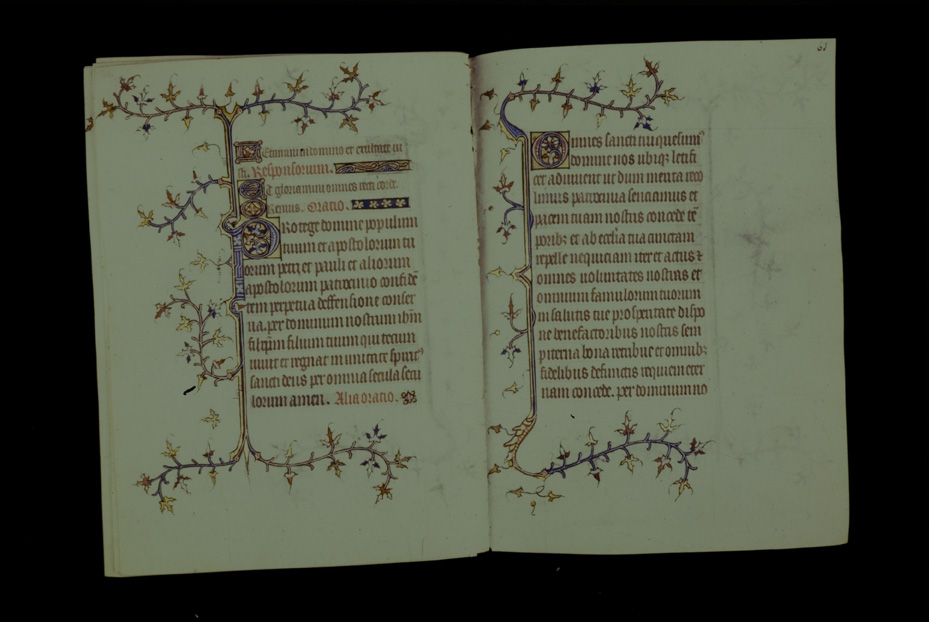 Letamini in domino et exultate iu
sti. Responsorium.
Et gloriamini omnes recti corde.
Oremus. Oratio.
Protege domine populum
tuum et apostolorum tu
orum petri et pauli et aliorum
apostolorum patrocinio confidē
tem perpetua deffensione conser
ua. per dominum nostrum ihm̄
filium tuum qui tecum
uiuit et regnat in unitate spirit9
sancti deus per omnia secula secu
lorum amen. Alia oratio.
61
Omnes sancti tui quesum9
domine nos ubiq; letifi
cet adiuuent ut dum merita reco
limus patrocinia senciamus et
pacem tuam nostris concede tē
poribz et ab ecclia tua cunctam
repelle nequiciam iter et actus et
omnes uoluntates nostras et
omnium famulorum tuorum
in salutis tue prosperitate dispo
ne benefactoribus nostris sem
piterna bona retribue et omnibz
fidelibus defunctis requiem eter
nam concede. per dominum no